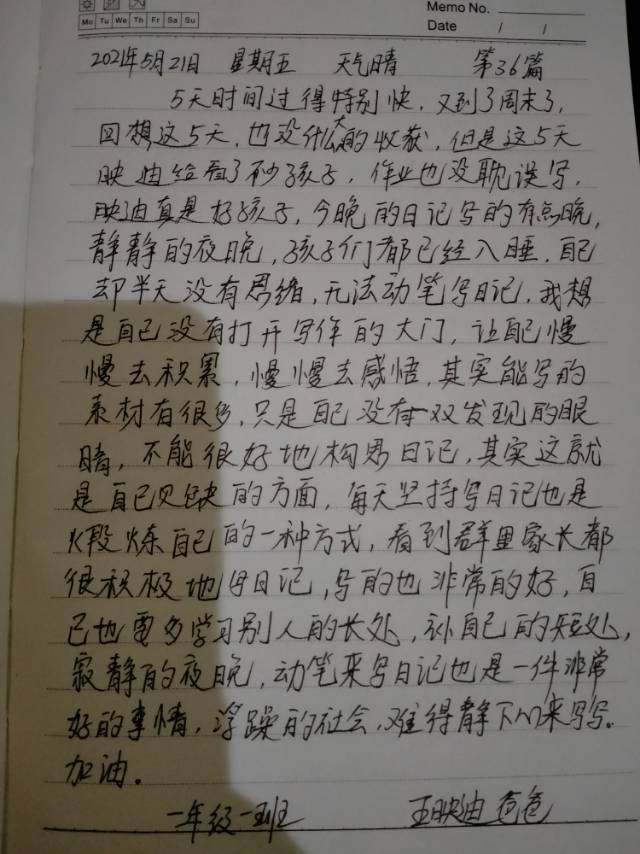 Memo No.
Mo Tu We Th Fr Sa Su
Date / /
2021年5月21日 星期五 天气晴 第36篇
5天时间过得特别快，又到了周末了，
回想这5天，也没什么大的收获，但是这5天
映迪给看了不少孩子，作业也没耽误写，
映迪真是好孩子，今晚的日记写的有点晚，
静静的夜晚，孩子们都已经入睡，自己
却半天没有思绪，无法动笔写日记，我想
是自己没有打开写作的大门，让自己慢
慢去积累，慢慢去感悟，其实能写的
素材有很多，只是自己没有一双发现的眼
睛，不能很好地构思日记，其实这就
是自己欠缺的方面，每天坚持写日记也是
火段炼自己的一种方式，看到群里家长都
很积极地写日记，写的也非常的好，自
己也要多学习别人的长处，补自己的短处，
寂静的夜晚，动笔来写日记也是一件非常
好的事情，浮躁的社会，难得静下心来写写。
加油。
一年级一班 王映迪爸爸